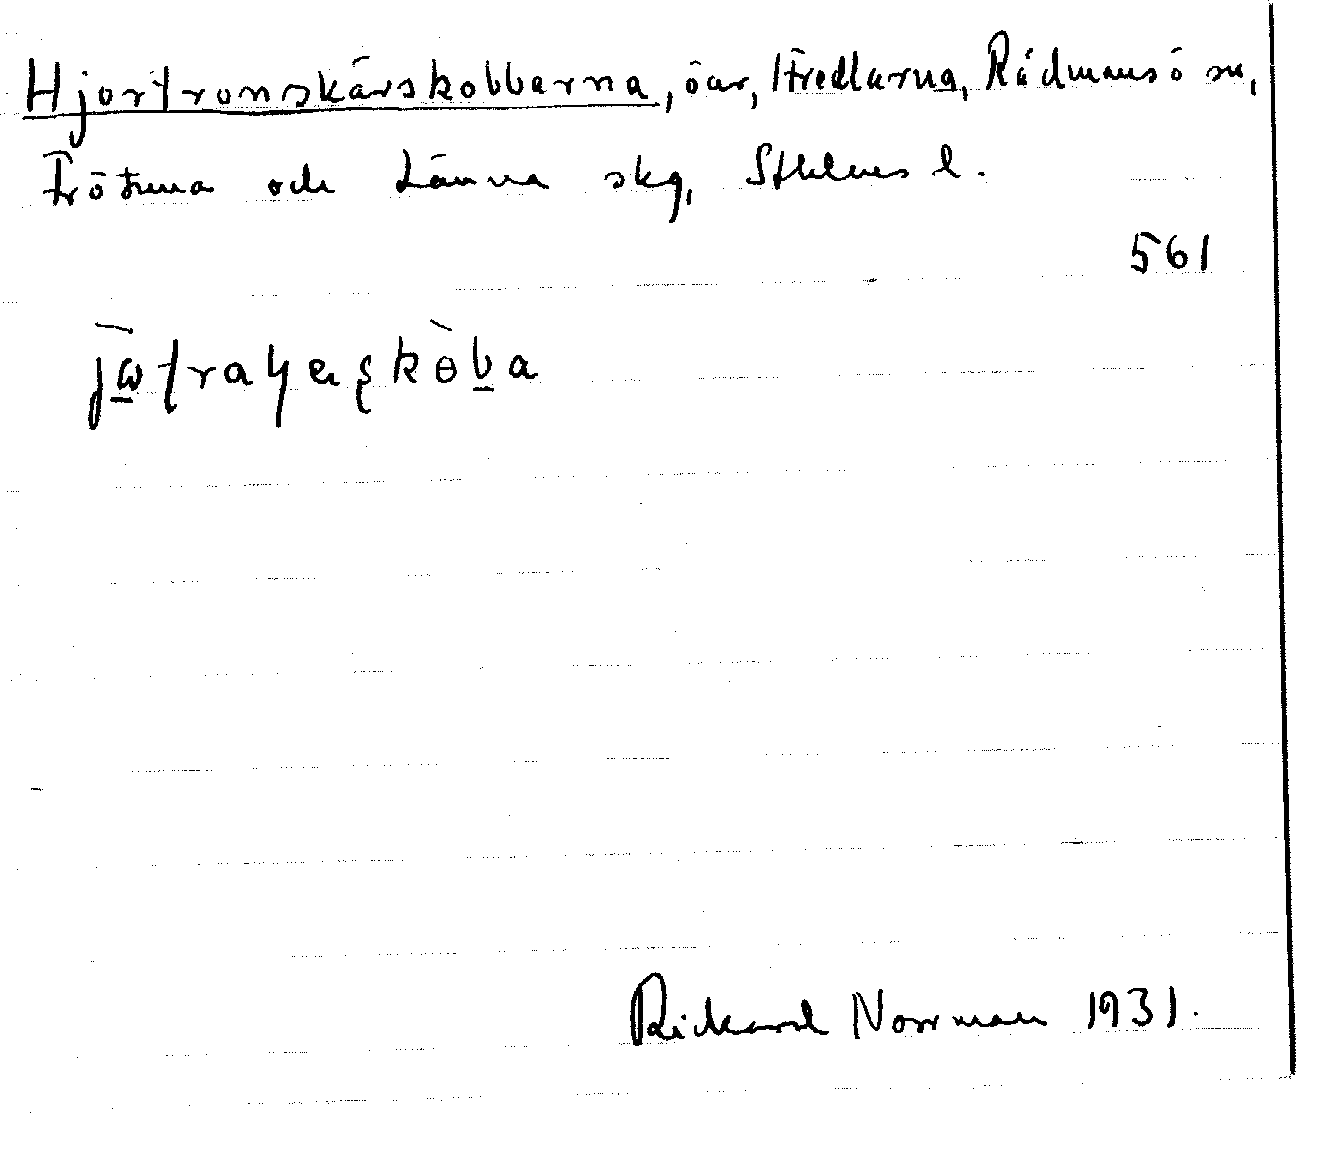 Hjortronskärskobbarna, öar, Hfredlarna, Rådmansö sn,
Frötuna och Länna skg, Sthlms l.
561
Rickard Norrman 1931.